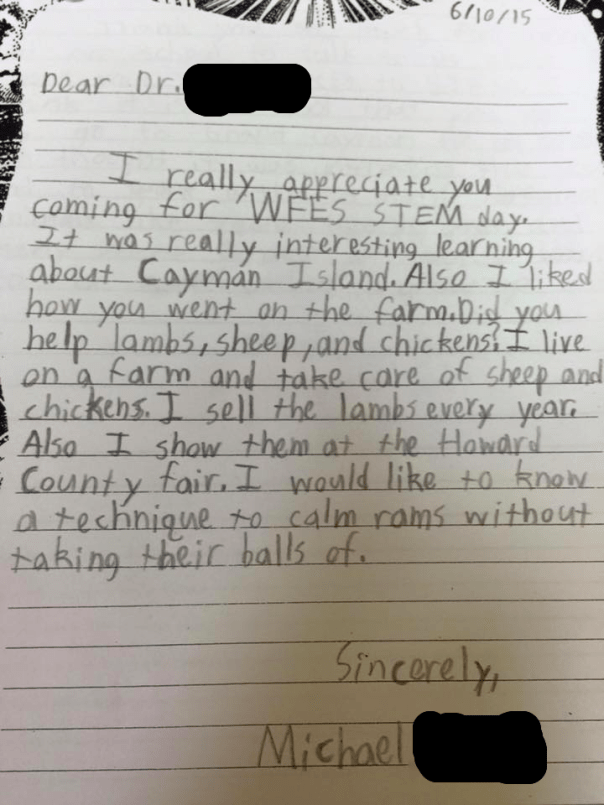 6/10/15
Dear Dr.
I really appreciate you
coming for WFES STEM day.
It was really interesting learning
about Cayman Island. Also I liked
how you went on the farm. Did you
help lambs, sheep, and chickens? I live
on a farm and take care of sheep and
chickens. I sell the lambs every year.
Also I show them at the Howard
County fair. I would like to know
a technique to calm rams without
taking their balls of.
Sincerely,
Michael